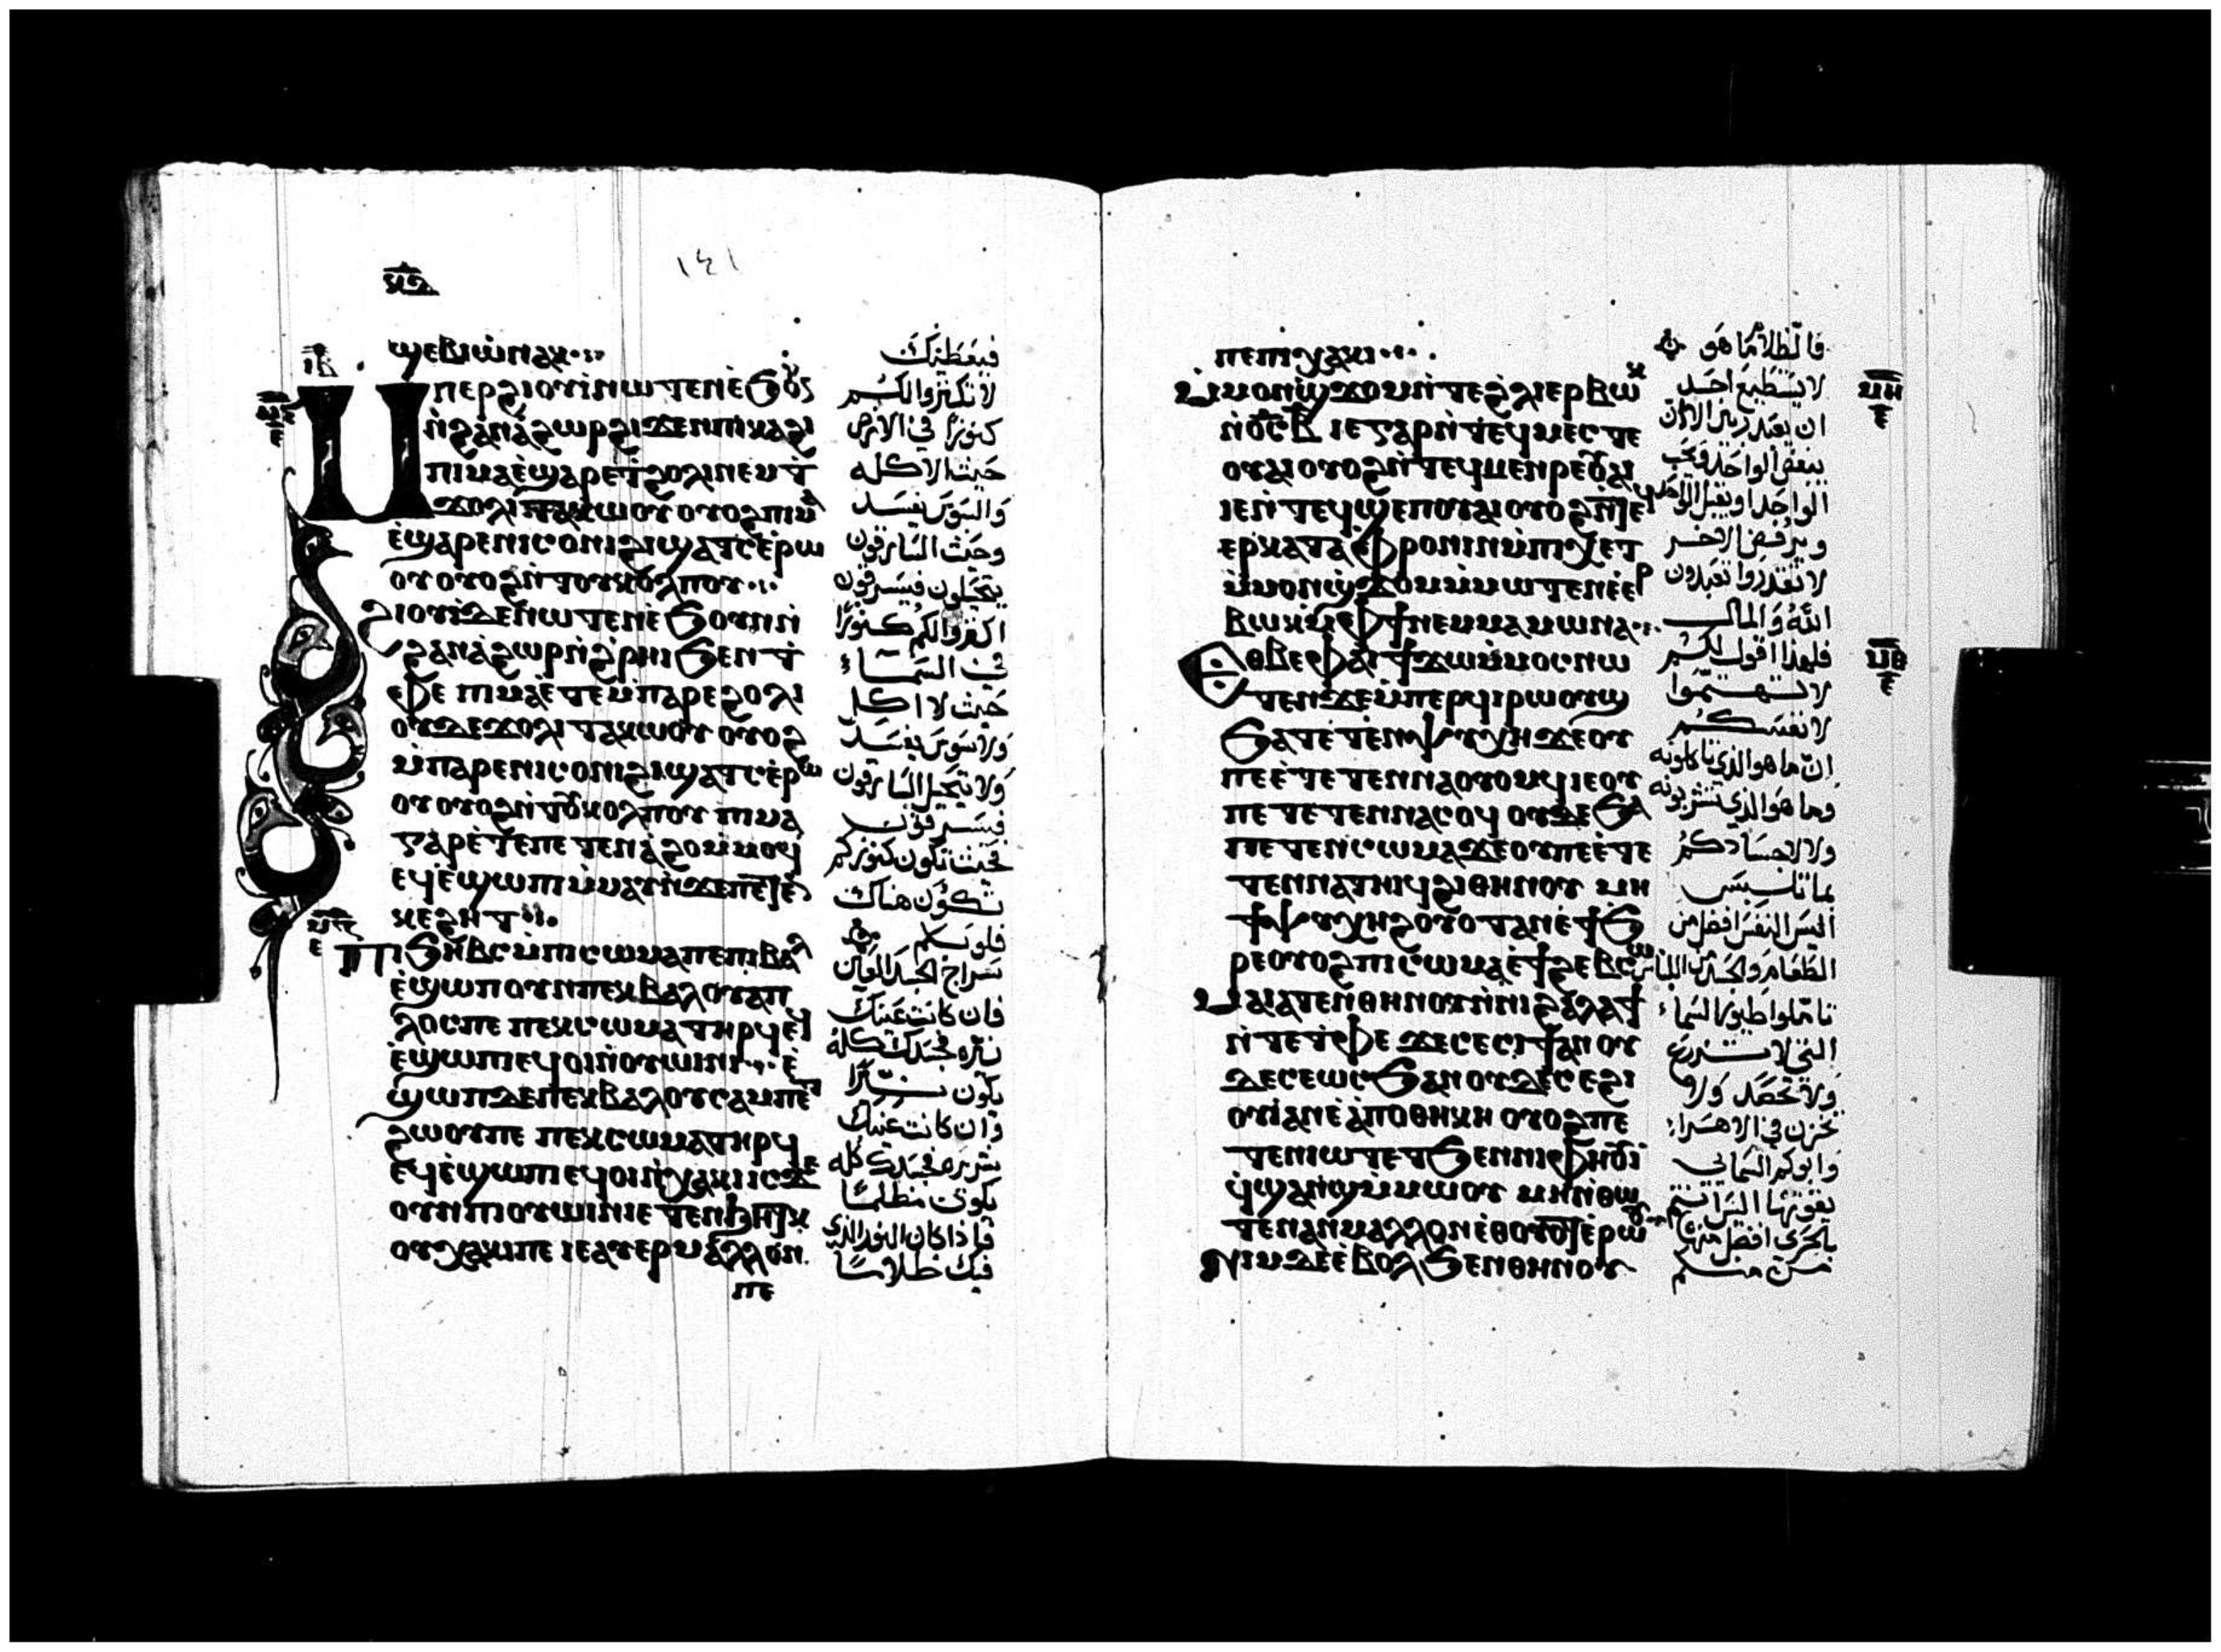 ϣⲉⲃⲓⲱ̀ⲛⲁⲕ
Ⲙⲡⲉⲣϩⲓⲟⲩⲓ̀ⲛⲱⲧⲉⲛⲉ̀ϧⲟⲩⲛ
ⲛ̀ϩⲁⲛⲁ̀ϩⲱⲣϩⲓϫⲉⲛⲡⲓⲕⲁϩⲓ
ⲡⲓⲙⲁⲉ̀ϣⲁⲣⲉϯϩⲟⲗⲓⲛⲉⲙϯ
ϫⲟⲗⲓⲧⲁⲕⲱⲟⲩⲟⲩⲟϩⲡⲓⲙⲁ
ⲉ̀ϣⲁⲣⲉⲛⲓⲥⲟⲛⲓϩⲓϣⲁⲧⲥⲉ̀ⲣⲱ
ⲟⲩⲟⲩⲟϩⲛ̀ⲧⲟⲩⲕⲟⲗⲡⲟⲩ
ϩⲓⲟⲩⲓ̀ϫⲉⲛⲱⲧⲉⲛⲉ̀ϧⲟⲩⲛⲛ̀
ϩⲁⲛⲁ̀ϩⲱⲣⲛ̀ϩ̀ⲣⲏⲓϧⲉⲛⲧ
ⲫⲉⲡⲓⲙⲁⲉ̀ⲧⲉⲙ̀ⲡⲁⲣⲉϩⲟⲗⲓ
ⲟⲩϫⲉϫⲟⲗⲓⲧⲁⲕⲱⲟⲩⲟⲩⲟϩ
ⲙ̀ⲡⲁⲣⲉⲛⲓⲥⲟⲛⲓϩⲓϣⲁⲧⲥⲉ̀ⲣⲱ
ⲟⲩⲟⲩⲟϩⲛ̀ⲧⲟⲩⲕⲟⲗⲡⲟⲩⲡⲓⲙⲁ
ⲅⲁⲣⲉ̀ⲧⲉⲡⲉⲧⲉⲛⲁ̀ϩⲟⲙ̀ⲙⲟϥ
ⲉϥⲉ̀ϣⲱⲡⲓⲙ̀ⲙⲁⲩ
ⲕⲉϩⲏⲧ
ⲡⲓϧⲏⲃⲥⲙ̀ⲡⲓⲥⲱⲙⲁⲡⲉⲡⲓⲃⲁⲗ
ⲉ̀ϣⲱⲡⲟⲩⲛⲡⲉⲕⲃⲁⲗⲟⲩⲁⲡ
ⲗⲟⲥⲡⲉⲡⲉⲕⲥⲱⲙⲁⲧⲏⲣϥⲉϥ
ⲉ̀ϣⲱⲡⲓⲉϥⲟⲓⲛ̀ⲟⲩⲱⲓⲛⲓⲉ̀
ϣⲱⲡϫⲉⲡⲉⲕⲃⲁⲗⲟⲩⲥⲁⲙⲡⲉⲧ
ϩⲱⲟⲩⲡⲉⲡⲉⲕⲥⲱⲙⲁⲧⲏⲣϥ
ⲉϥⲉ̀ϣⲱⲡⲓⲉϥⲟⲓⲛ̀ⲭⲁⲕⲓⲓⲥϫⲉ
ⲟⲩⲛⲡⲓⲟⲩⲱⲓⲛⲓⲉⲧⲉⲛϧⲏⲧⲕ
ⲟⲩⲭⲁⲕⲓⲡⲉⲓⲉⲁⲩⲉⲣⲙⲁⲗⲗⲟⲛ
ⲡⲉ
١٤١
فيعطيك
لا تكنزوا لكم
كنوزًا في الارض
حيث الاكله
والسوس يفسد
وحيث السارقون
يتحيلون فيسرقون
اكنزوا لكم كنوزًا
في السماء
حيث لا اكله
ولا سوس يفسد
ولا يتحيل السارقون
فيسرقون
فحيث تكون كنوزكم
تكون هناك
قلوبكم
سراج الجسد العين
فان كانت عينك
نيره فجسدك كله
يكون نيرًا
وان كانت عينك
شريره فجسدك كله
يكون مظلمًا
فاذا كان النور الذي
فيك ظلامًا
ⲡⲉⲡⲓⲭⲁⲕⲓ
ⲙ̀ⲙⲟⲛϣϫⲟⲙⲛ̀ⲧⲉϩ̀ⲗⲓⲉⲣⲃⲱⲕ
ⲛ̀ⲟ̅ⲥ̅ⲃ̅ⲓⲉⲅⲁⲣⲛ̀ⲧⲉϥⲙⲉⲥⲧⲉ
ⲟⲩⲁⲓⲟⲩⲟϩⲛ̀ⲧⲉϥⲙⲉⲛⲣⲉⲟⲩⲁⲓ
ⲓⲉⲛ̀ⲧⲉϥϣⲉⲡⲟⲩⲁⲓⲟⲩⲟϩⲛ̀ⲧⲉϥ
ⲉⲣⲕⲁⲧⲁⲫⲣⲟⲛⲓⲛⲙ̀ⲡⲓⲭⲉⲧ
ⲙ̀ⲙⲟⲛϣϫⲟⲙⲙ̀ⲙⲱⲧⲉⲛⲉ̀ⲉⲣ
ⲃⲱⲕⲙ̀ⲫϯⲛⲉⲙⲙⲁⲙⲱⲛⲁ
ⲉⲑⲃⲉⲫⲁⲓϯϫⲱⲙ̀ⲙⲟⲥⲛⲱ
ⲧⲉⲛϫⲉⲙ̀ⲡⲉⲣϥⲓⲣⲱⲟⲩϣ
ϧⲁⲧⲉⲧⲉⲛⲯⲩⲭⲏϫⲉⲟⲩ
ⲡⲉⲉ̀ⲧⲉⲧⲉⲛⲛⲁⲟⲩⲟⲙϥⲓⲉⲟⲩ
ⲡⲉⲧⲉⲧⲉⲛⲛⲁⲥⲟϥⲟⲩϫⲉϧⲁ
ⲡⲉⲧⲉⲛⲥⲱⲙⲁϫⲉⲟⲩⲡⲉⲉ̀ⲧⲉ
ⲧⲉⲛⲛⲁⲧⲏⲓϥϩⲓⲑⲏⲛⲟⲩⲙⲏ
ϯⲯⲩⲭⲏϩⲟⲩⲟⲧⲁⲛⲉ̀ϯϧ
ⲣⲉⲟⲩⲟϩⲡⲓⲥⲱⲙⲁⲉ̀ϯϩⲉⲃⲥⲱ
ⲙⲁⲓⲁⲧⲉⲛⲑⲏⲛⲟⲩⲛ̀ⲛⲓϩⲁⲗⲁϯ
ⲛ̀ⲧⲉⲧⲫⲉϫⲉⲥⲉⲥⲓϯⲁⲛⲟⲩ
ϫⲉⲥⲉⲱⲥϧⲁⲛⲟⲩϫⲉⲥⲉϩⲓ
ⲟⲩⲓ̀ⲁⲛⲉ̀ⲁ̀ⲡⲟⲑⲏⲕⲏⲟⲩⲟϩⲡⲉ
ⲧⲉⲛⲓⲱⲧⲉⲧϧⲉⲛⲛⲓⲫⲏⲟⲩⲓ̀
ϥ̀ϣⲁⲛϣⲙ̀ⲙⲱⲟⲩⲙⲏⲛ̀ⲑⲱ
ⲧⲉⲛⲁⲛⲙⲁⲗⲗⲟⲛⲉ̀ⲑⲟⲩⲟⲧⲉ̀ⲣⲱⲟⲩ
ⲛⲓⲙϫⲉⲉ̀ⲃⲟⲗϧⲉⲛⲑⲏⲛⲟⲩ
فالظلام ما هو
لا يستطيع احد
ان يعبد ربين الا ان
يبغض الواحد ويحب
الواحد او يقبل الواحد
ويرفض الاخر
لا تقدروا تعبدون
الله والمال
فلهذا اقول لكم
لا تهتموا
لانفسكم
ان ما هو الذي تاكلونه
وما هو الذي تشربونه
ولا لاجسادكم
بما تلبس
اليس النفس افضل من
الطعام والجسد من اللباس
تاملوا طيور السماء
التي لا تزرع
ولا تحصد ولا
تخزن في الاهراء
وابوكم السمايي
يقوتها السا انتم
بالحري افضل منها
من منكم